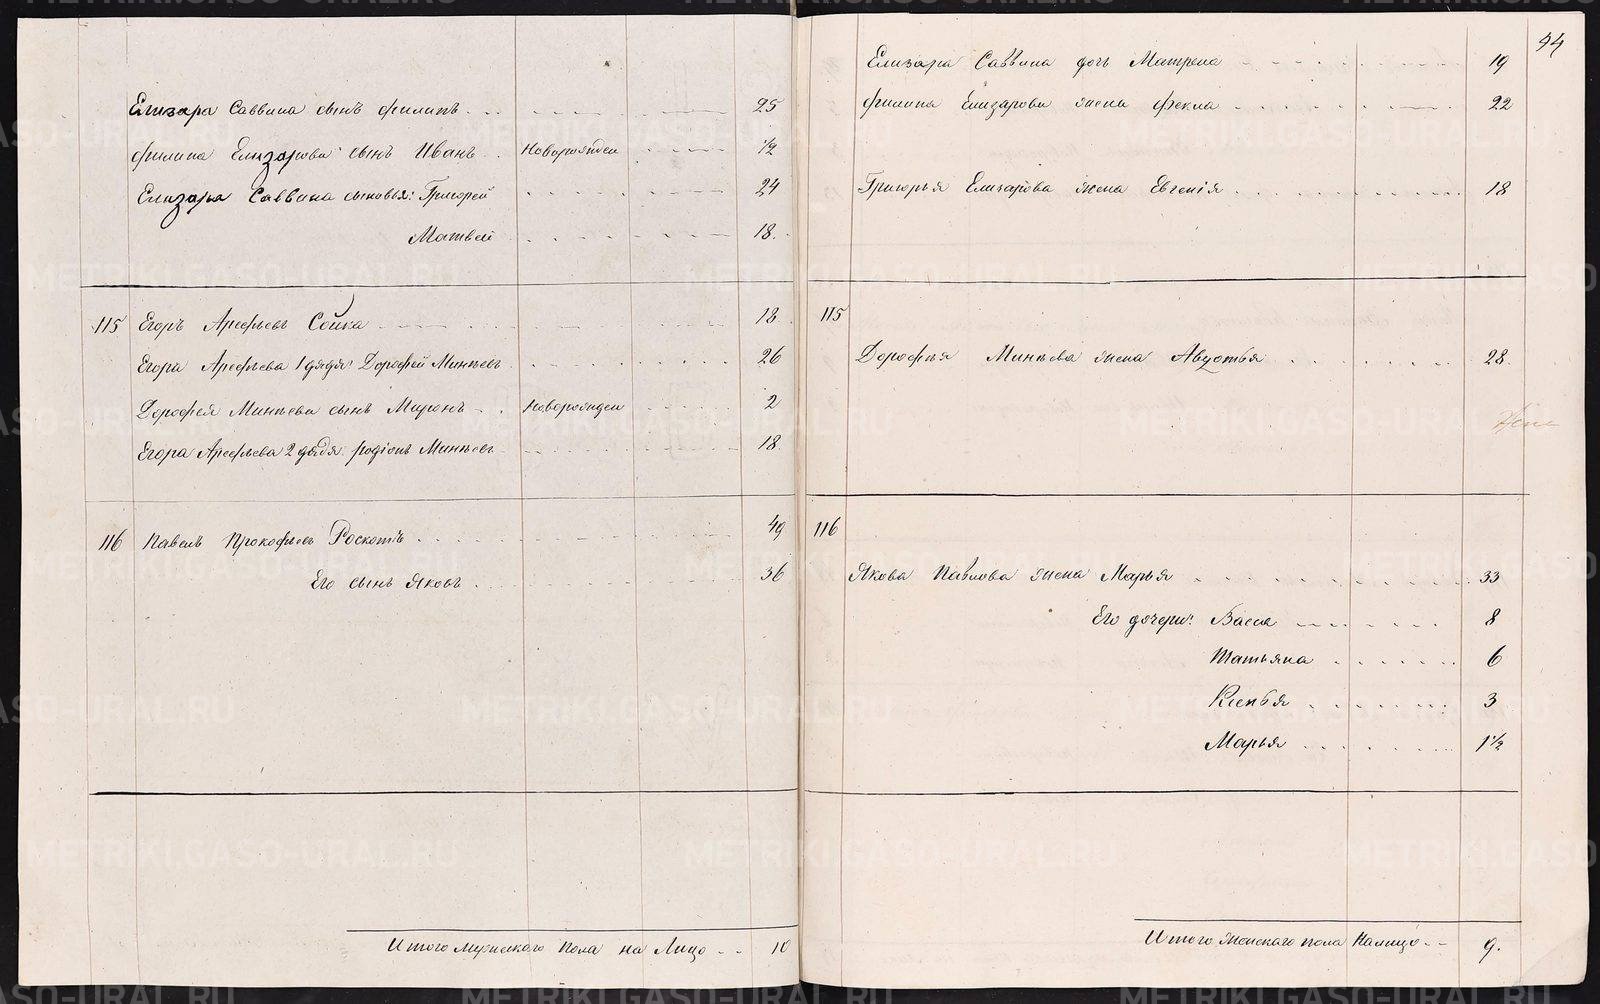 Елизара Саввина сынъ Филипъ 25
Филипа Елизарова сынъ Иванъ Новорожден 1/2
Елизара Саввина сыновья: Григорей 24
Матвей 18.
115 Егоръ Арефьевъ Сойка 18
Егора Арефьева 1 дядя: Дорофей Минѣевъ 26
Дорофея Минѣева сынъ Миронъ Новорожден 2
Егора Арефьева 2 дядя: Родіонъ Минѣевъ 18
116 Павелъ Прокофьевъ 49
Его сынъ Яковъ 36
Итого мужескаго пола на Лицо 10
44
Елизара Саввина дочь Матрена 19
Филипа Елизарова жена Фекла 22
Григорья Елизарова жена Евгенія 18
115
Дорофея Минѣева жена Авдотья 28
116
Якова Павлова жена Марья 33
Его дочери: Васса 8
Татьяна 6
Ксенья 3
Марья 1 1/2
Итого женскаго пола Налицо 9.
METRIKI.GASO-URAL.RU